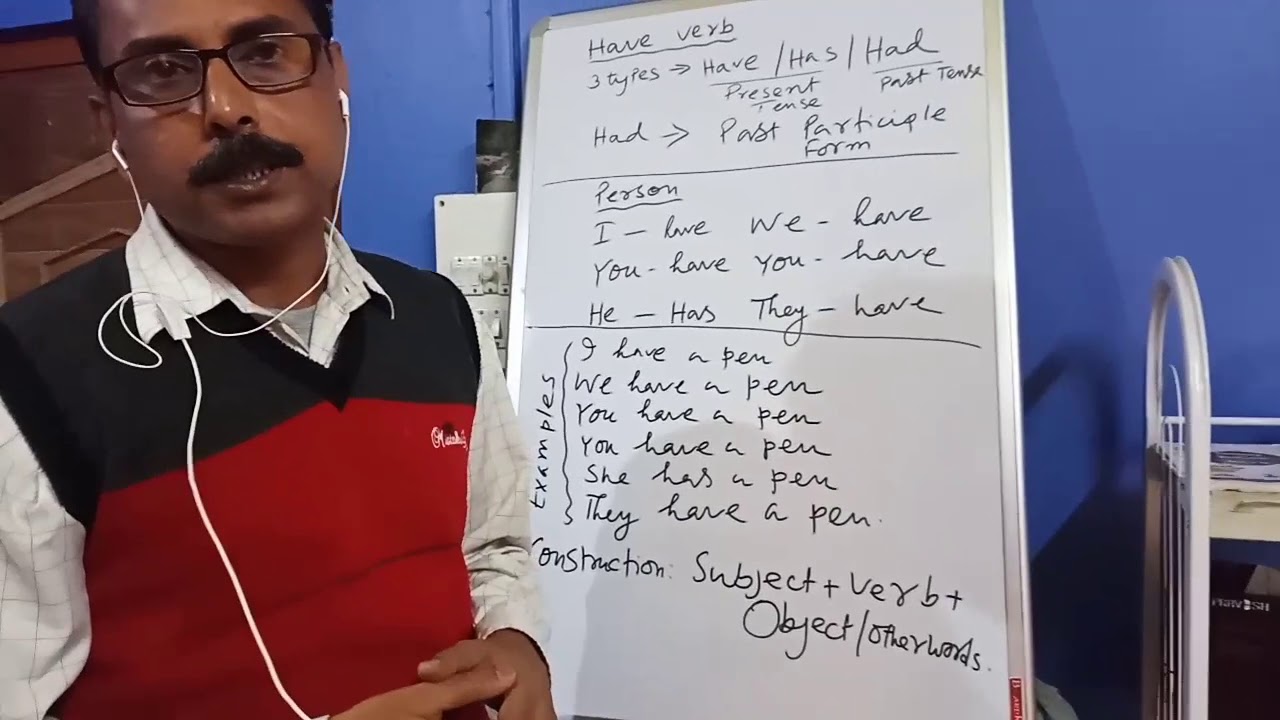 Have verb
3 types → Have / Has / Had
Present Tense
Past Tense
Had → Past Participle Form
Person
I - have We - have
You - have You - have
He - Has They - have
Examples
I have a pen
We have a pen
You have a pen
You have a pen
She has a pen
They have a pen.
Construction: Subject + Verb +
Object / other words.